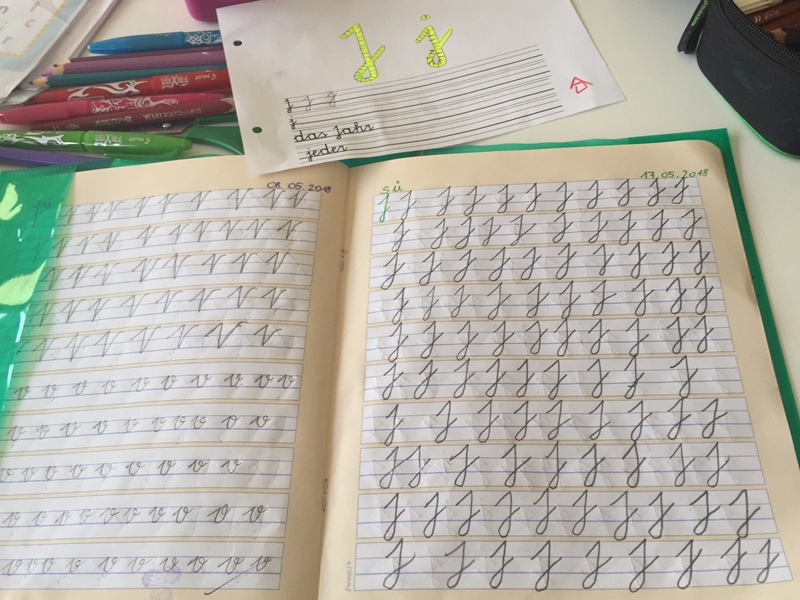 J j
J J J
j
das Jahr
jeder
08.05.2018
V V V V V V V V V V
V V V V V V V V V V
V V V V V V V V V
V V V V V V V V
V V V V V V V
v v v v v v v v v v
v v v v v v v v v v
v v v v v v v v
v v v v v v v v v v
v v v v v v v v v v
sü 17.05.2018
J J J J J J J J J J J
J J J J J J J J J J
J J J J J J J J J J
J J J J J J J J J J
J J J J J J J J J J
J J J J J J J J J
J J J J J J J J J
J J J J J J J J J
J J J J J J J J J J
J J J J J J J J J